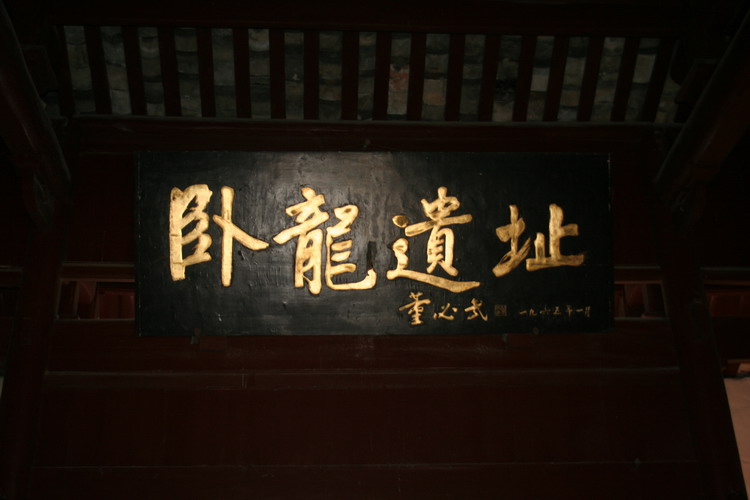 卧龍遺址
董必武 一九六三年一月